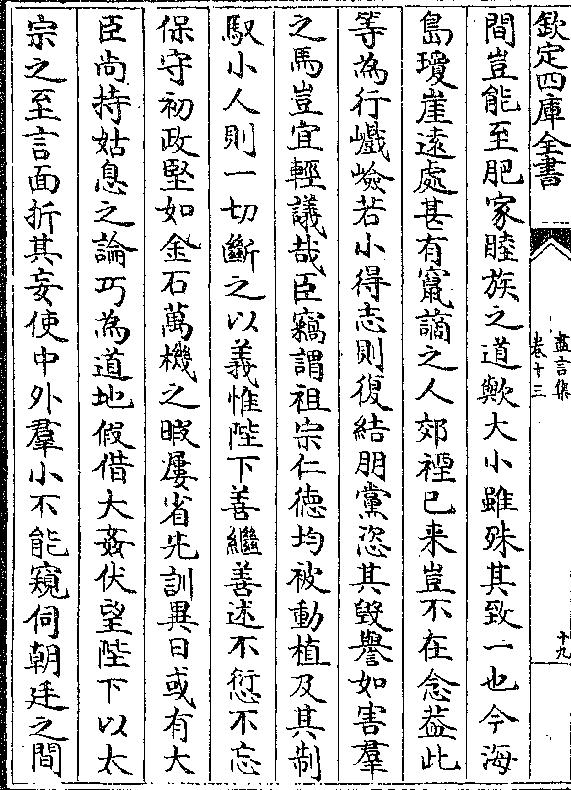 欽定四庫全書
盡言集
卷十三
十九
間豈能至肥家睦族之道歟大小雖殊其致一也今海
島瓊崖遠處甚有竄謫之人郊禋已来豈不在念葢此
等為行巇嶮若小得志則復結朋黨恣其毀譽如害羣
之馬豈宜輕議哉臣竊謂祖宗仁徳均被動植及其制
馭小人則一切斷之以義惟陛下善繼善述不愆不忘
保守初政堅如金石萬機之暇屢省先訓異日或有大
臣尚持姑息之論巧為道地假借大姦伏望陛下以太
宗之至言面折其妄使中外羣小不能窺伺朝廷之間